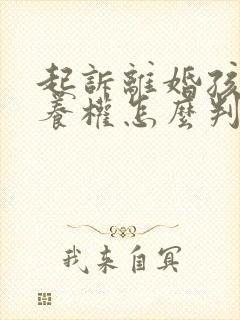 起訴離婚孩
養權怎麼判
我來自冥